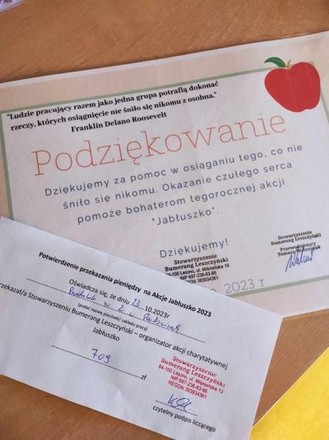 "Ludzie pracujący razem jako jedna grupa potrafią dokonać
rzeczy, których osiągnięcie nie śniło się nikomu z osobna."
Franklin Delano Roosevelt
Podziękowanie
Dziękujemy za pomoc w osiąganiu tego, co nie
śniło się nikomu. Okazanie czułego serca
pomoże bohaterom tegorocznej akcji
"Jabłuszko".
Dziękujemy!
Stowarzyszenie
Bumerang Leszczyński
Stowarzyszenie
Bumerang Leszczyński
2023 r
Potwierdzenie przekazania pieniędzy na Akcję Jabłuszko 2023
Oświadcza się, że dniu 23.10.2023r
przekazał/a Stowarzyszeniu Bumerang Leszczyński – organizator akcji charytatywnej
Jabłuszko
709 zł
Stowarzyszenie
Bumerang Leszczyński
czytelny podpis liczącego